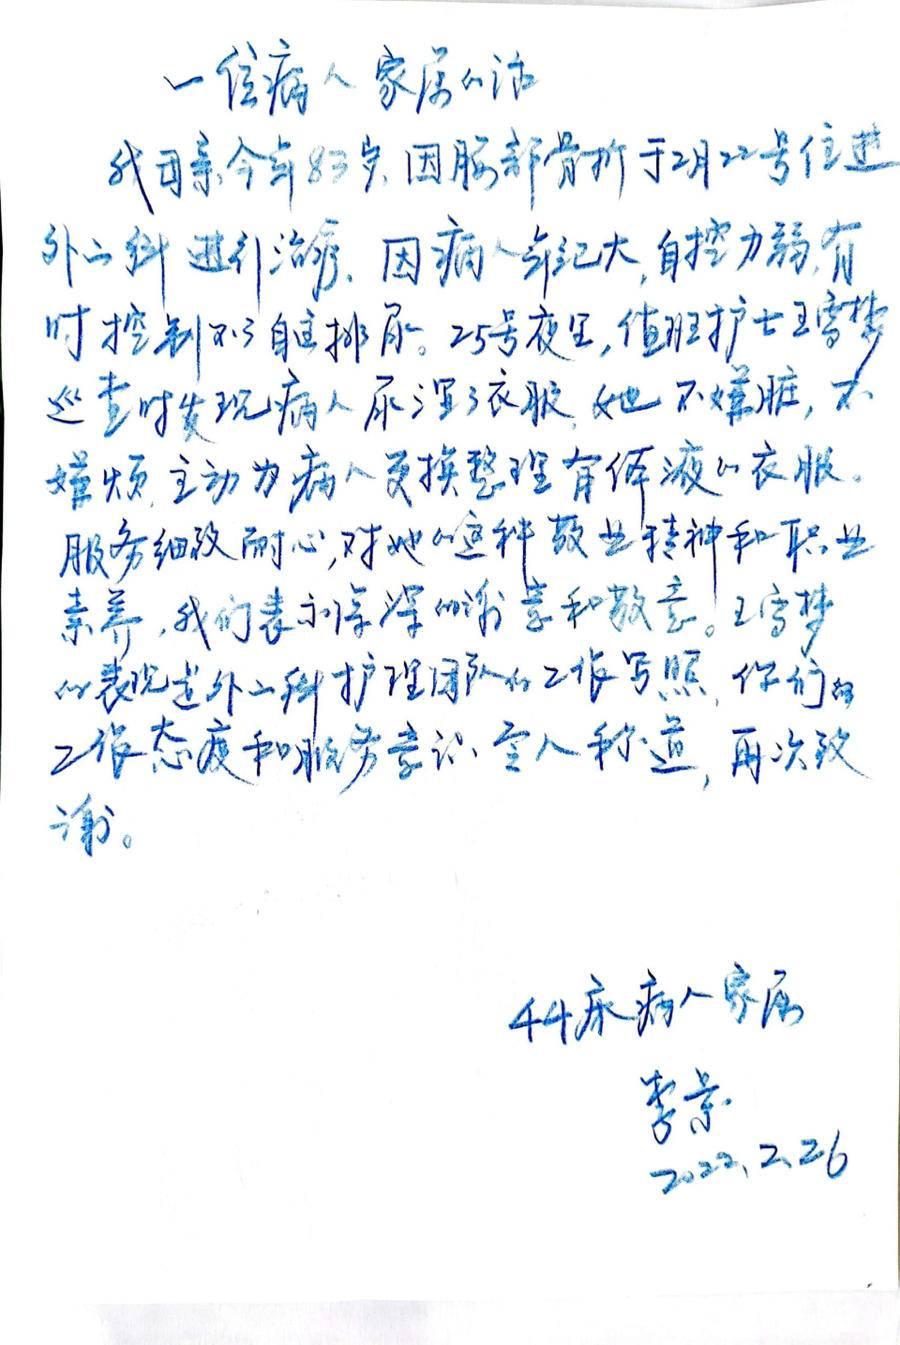 一位病人家属的话
我母亲今年83岁,因腰部骨折于2月22号住进
外二科进行治疗。因病人年纪大,自控力弱,有
时控制不了自主排尿。25号夜里,值班护士王雪梦
巡查时发现病人尿湿了衣服,她不嫌脏,不
嫌烦,主动为病人更换整理有体液的衣服。
服务细致耐心,对她的这种敬业精神和职业
素养,我们表示深深的谢意和敬意。王雪梦
的表现是外二科护理团队的工作写照,你们的
工作态度和服务意识、令人称道,再次致
谢。
44床病人家属
李景
2022.2.26